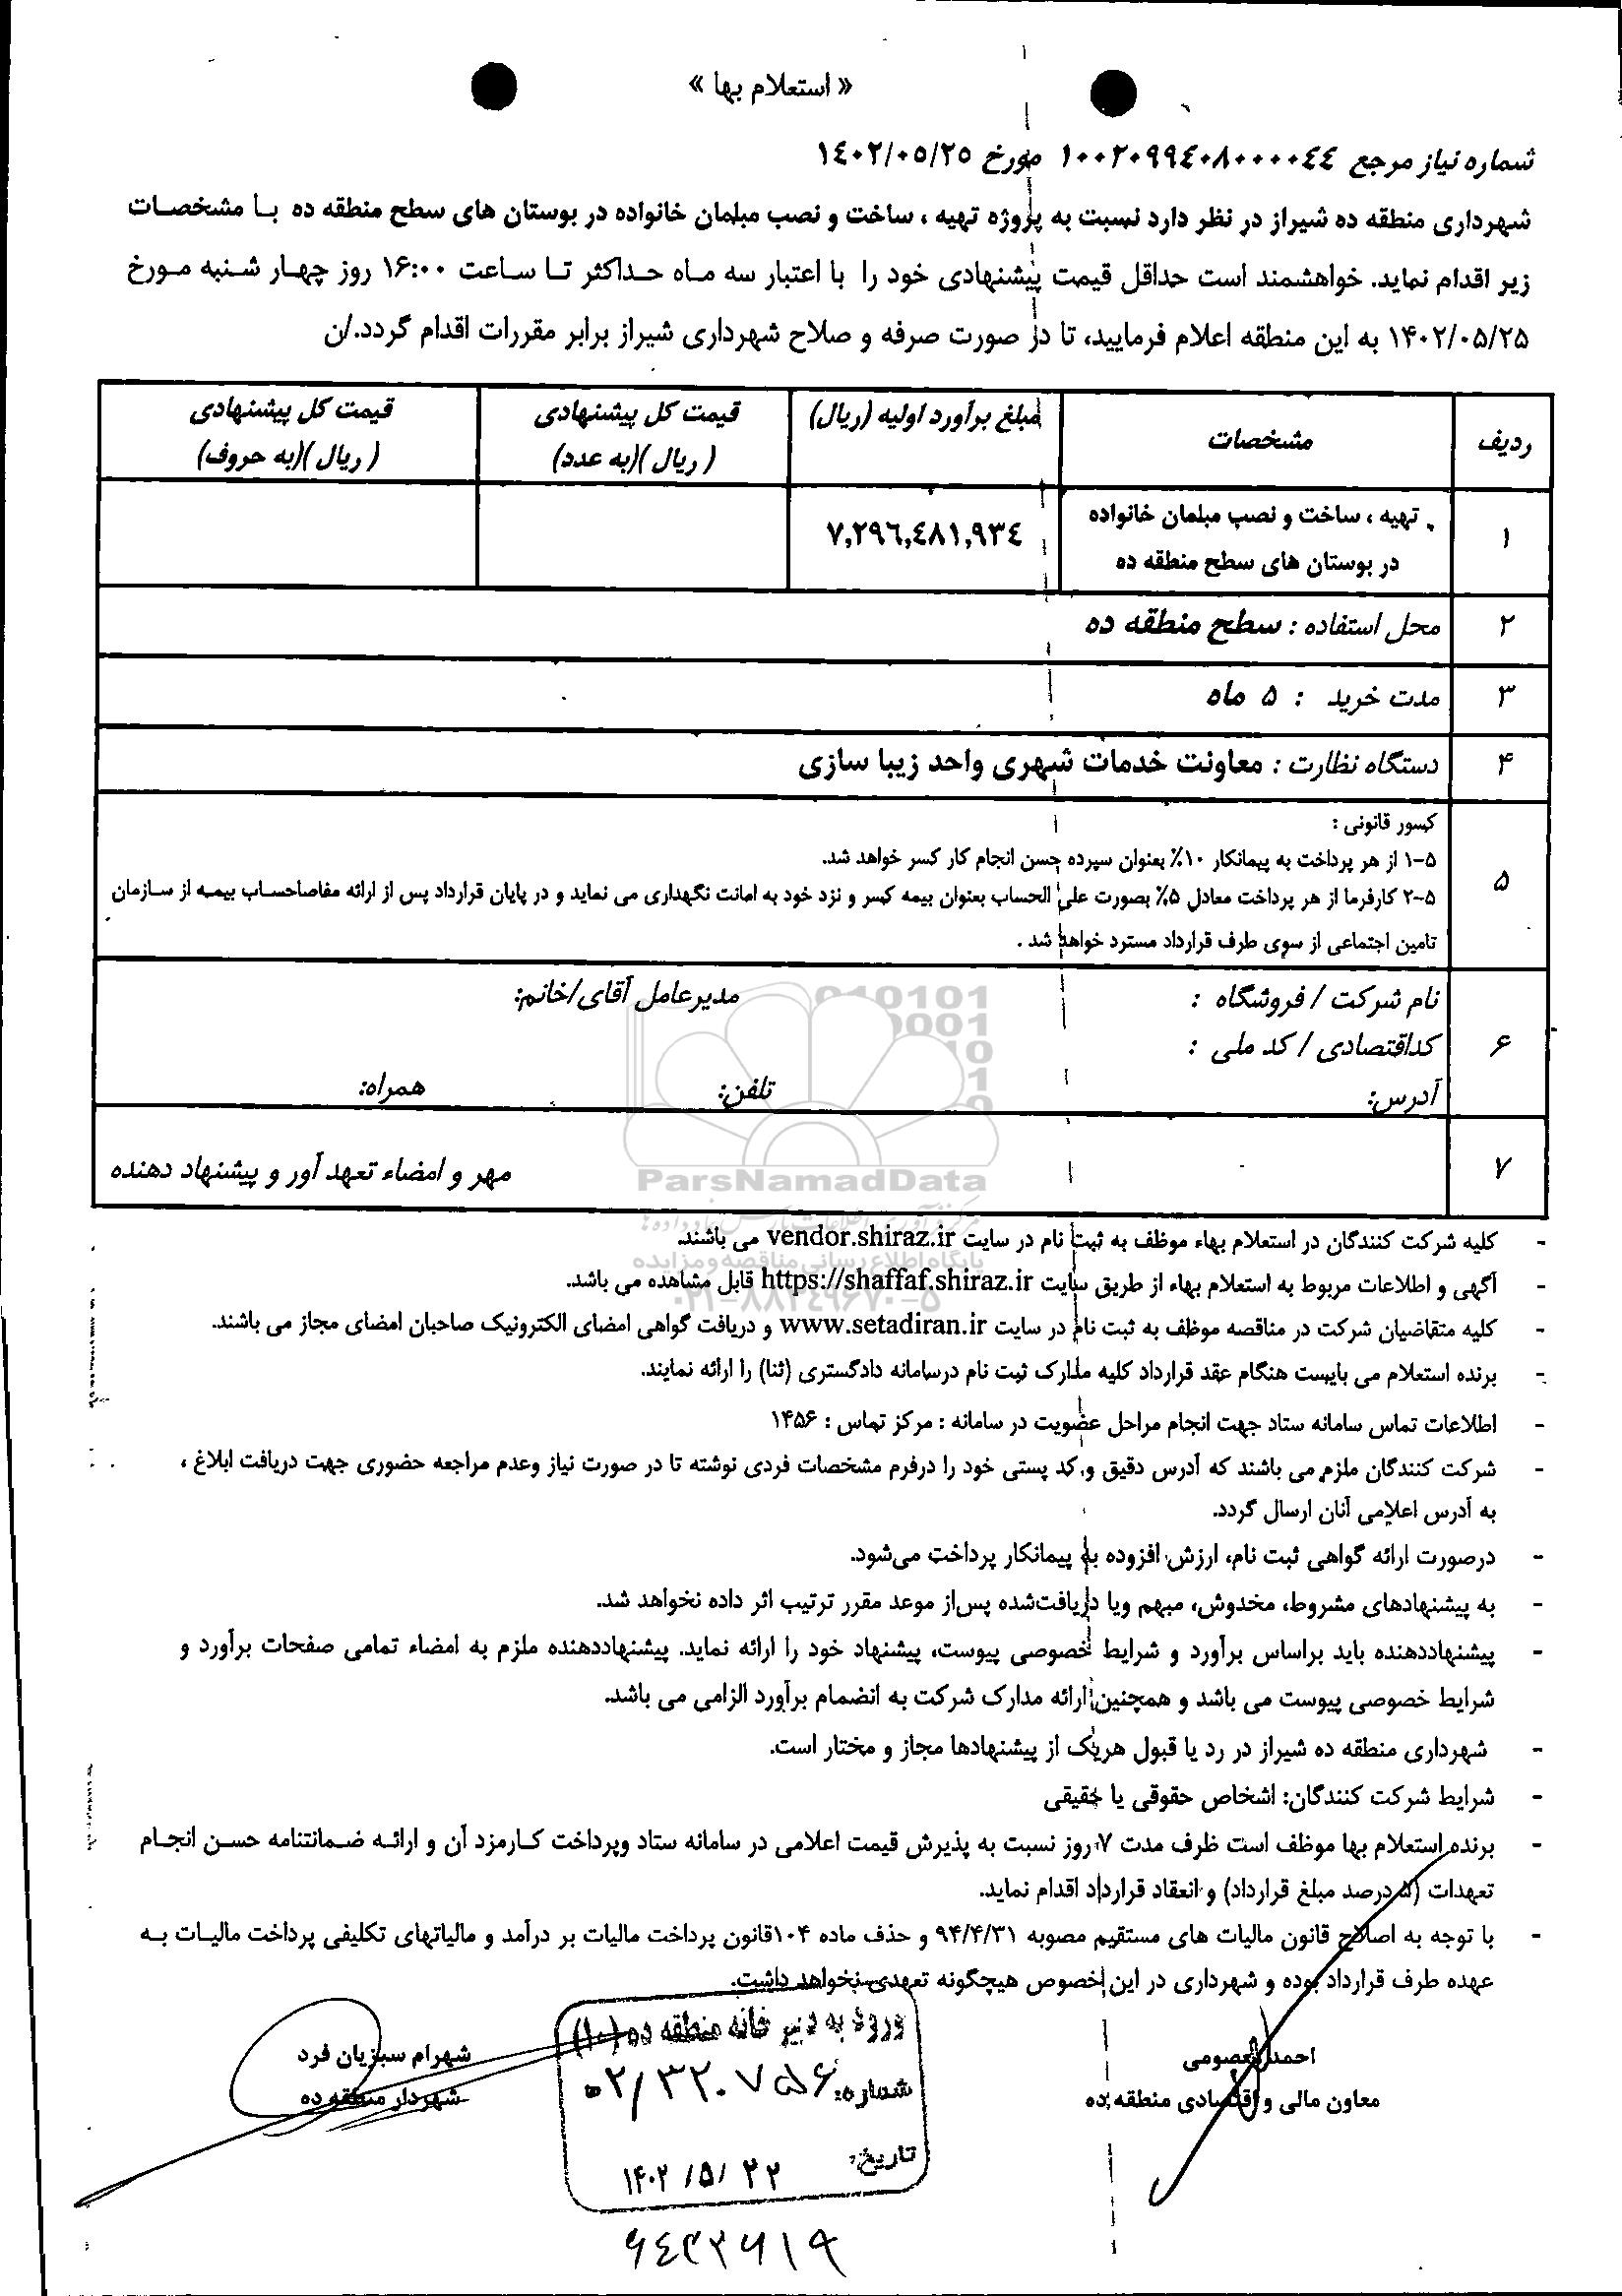 « استعلام بها »
شماره نیاز مرجع ۱۰۰۲۰۹۹۴۰۸۰۰۰۰۴۴ مورخ ۱۴۰۲/۰۵/۲۵
شهرداری منطقه ده شیراز در نظر دارد نسبت به پروژه تهیه ، ساخت و نصب مبلمان خانواده در بوستان های سطح منطقه ده با مشخصات
زیر اقدام نماید. خواهشمند است حداقل قیمت پیشنهادی خود را با اعتبار سه ماه حداکثر تا ساعت ۱۶:۰۰ روز چهار شنبه مورخ
۱۴۰۲/۰۵/۲۵ به این منطقه اعلام فرمایید، تا در صورت صرفه و صلاح شهرداری شیراز برابر مقررات اقدام گردد./ن
ردیف
مشخصات
مبلغ برآورد اولیه (ریال)
قیمت کل پیشنهادی
( ریال )(به عدد)
قیمت کل پیشنهادی
( ریال )(به حروف)
۱
تهیه ، ساخت و نصب مبلمان خانواده
در بوستان های سطح منطقه ده
۷,۲۹۶,۴۸۱,۹۳۴
۲
محل استفاده : سطح منطقه ده
۳
مدت خرید : ۵ ماه
۴
دستگاه نظارت : معاونت خدمات شهری واحد زیبا سازی
۵
کسور قانونی :
۵-۱ از هر پرداخت به پیمانکار ۱۰٪ بعنوان سپرده حسن انجام کار کسر خواهد شد.
۵-۲ کارفرما از هر پرداخت معادل ۵٪ بصورت علی الحساب بعنوان بیمه کسر و نزد خود به امانت نگهداری می نماید و در پایان قرارداد پس از ارائه مفاصاحساب بیمه از سازمان
تامین اجتماعی از سوی طرف قرارداد مسترد خواهد شد .
۶
نام شرکت / فروشگاه :
مدیرعامل آقای/خانم:
کداقتصادی / کد ملی :
آدرس:
تلفن:
همراه:
۷
مهر و امضاء تعهد آور و پیشنهاد دهنده
ParsNamadData
پایگاه اطلاع رسانی مناقصه و مزایده
۰۲۱-۸۸۳۴۹۶۷۰-۵
- کلیه شرکت کنندگان در استعلام بهاء موظف به ثبت نام در سایت vendor.shiraz.ir می باشند.
- آگهی و اطلاعات مربوط به استعلام بهاء از طریق سایت https://shaffaf.shiraz.ir قابل مشاهده می باشد.
- کلیه متقاضیان شرکت در مناقصه موظف به ثبت نام در سایت www.setadiran.ir و دریافت گواهی امضای الکترونیک صاحبان امضای مجاز می باشند.
- برنده استعلام می بایست هنگام عقد قرارداد کلیه مدارک ثبت نام درسامانه دادگستری (ثنا) را ارائه نمایند.
- اطلاعات تماس سامانه ستاد جهت انجام مراحل عضویت در سامانه : مرکز تماس : ۱۴۵۶
- شرکت کنندگان ملزم می باشند که آدرس دقیق و کد پستی خود را درفرم مشخصات فردی نوشته تا در صورت نیاز وعدم مراجعه حضوری جهت دریافت ابلاغ ،
به آدرس اعلامی آنان ارسال گردد.
- درصورت ارائه گواهی ثبت نام، ارزش افزوده به پیمانکار پرداخت می‌شود.
- به پیشنهادهای مشروط، مخدوش، مبهم ویا دریافت‌شده پس‌از موعد مقرر ترتیب اثر داده نخواهد شد.
- پیشنهاددهنده باید براساس برآورد و شرایط خصوصی پیوست، پیشنهاد خود را ارائه نماید. پیشنهاددهنده ملزم به امضاء تمامی صفحات برآورد و
شرایط خصوصی پیوست می باشد و همچنین ارائه مدارک شرکت به انضمام برآورد الزامی می باشد.
- شهرداری منطقه ده شیراز در رد یا قبول هریک از پیشنهادها مجاز و مختار است.
- شرایط شرکت کنندگان: اشخاص حقوقی یا حقیقی
- برنده استعلام بها موظف است ظرف مدت ۷ روز نسبت به پذیرش قیمت اعلامی در سامانه ستاد وپرداخت کارمزد آن و ارائه ضمانتنامه حسن انجام
تعهدات (۵ درصد مبلغ قرارداد) و انعقاد قرارداد اقدام نماید.
- با توجه به اصلاح قانون مالیات های مستقیم مصوبه ۹۴/۴/۳۱ و حذف ماده ۱۰۴قانون پرداخت مالیات بر درآمد و مالیاتهای تکلیفی پرداخت مالیات به
عهده طرف قرارداد بوده و شهرداری در این خصوص هیچگونه تعهدی نخواهد داشت.
احمد معصومی
معاون مالی و اقتصادی منطقه ده
ورود به دبیر خانه منطقه ده (۱۰)
شماره: ۰۲/۳۲۰۷۵۶
تاریخ: ۱۴۰۲/۵/۲۲
شهرام سبزیان فرد
شهردار منطقه ده
۶۴۲۲۶۱۹